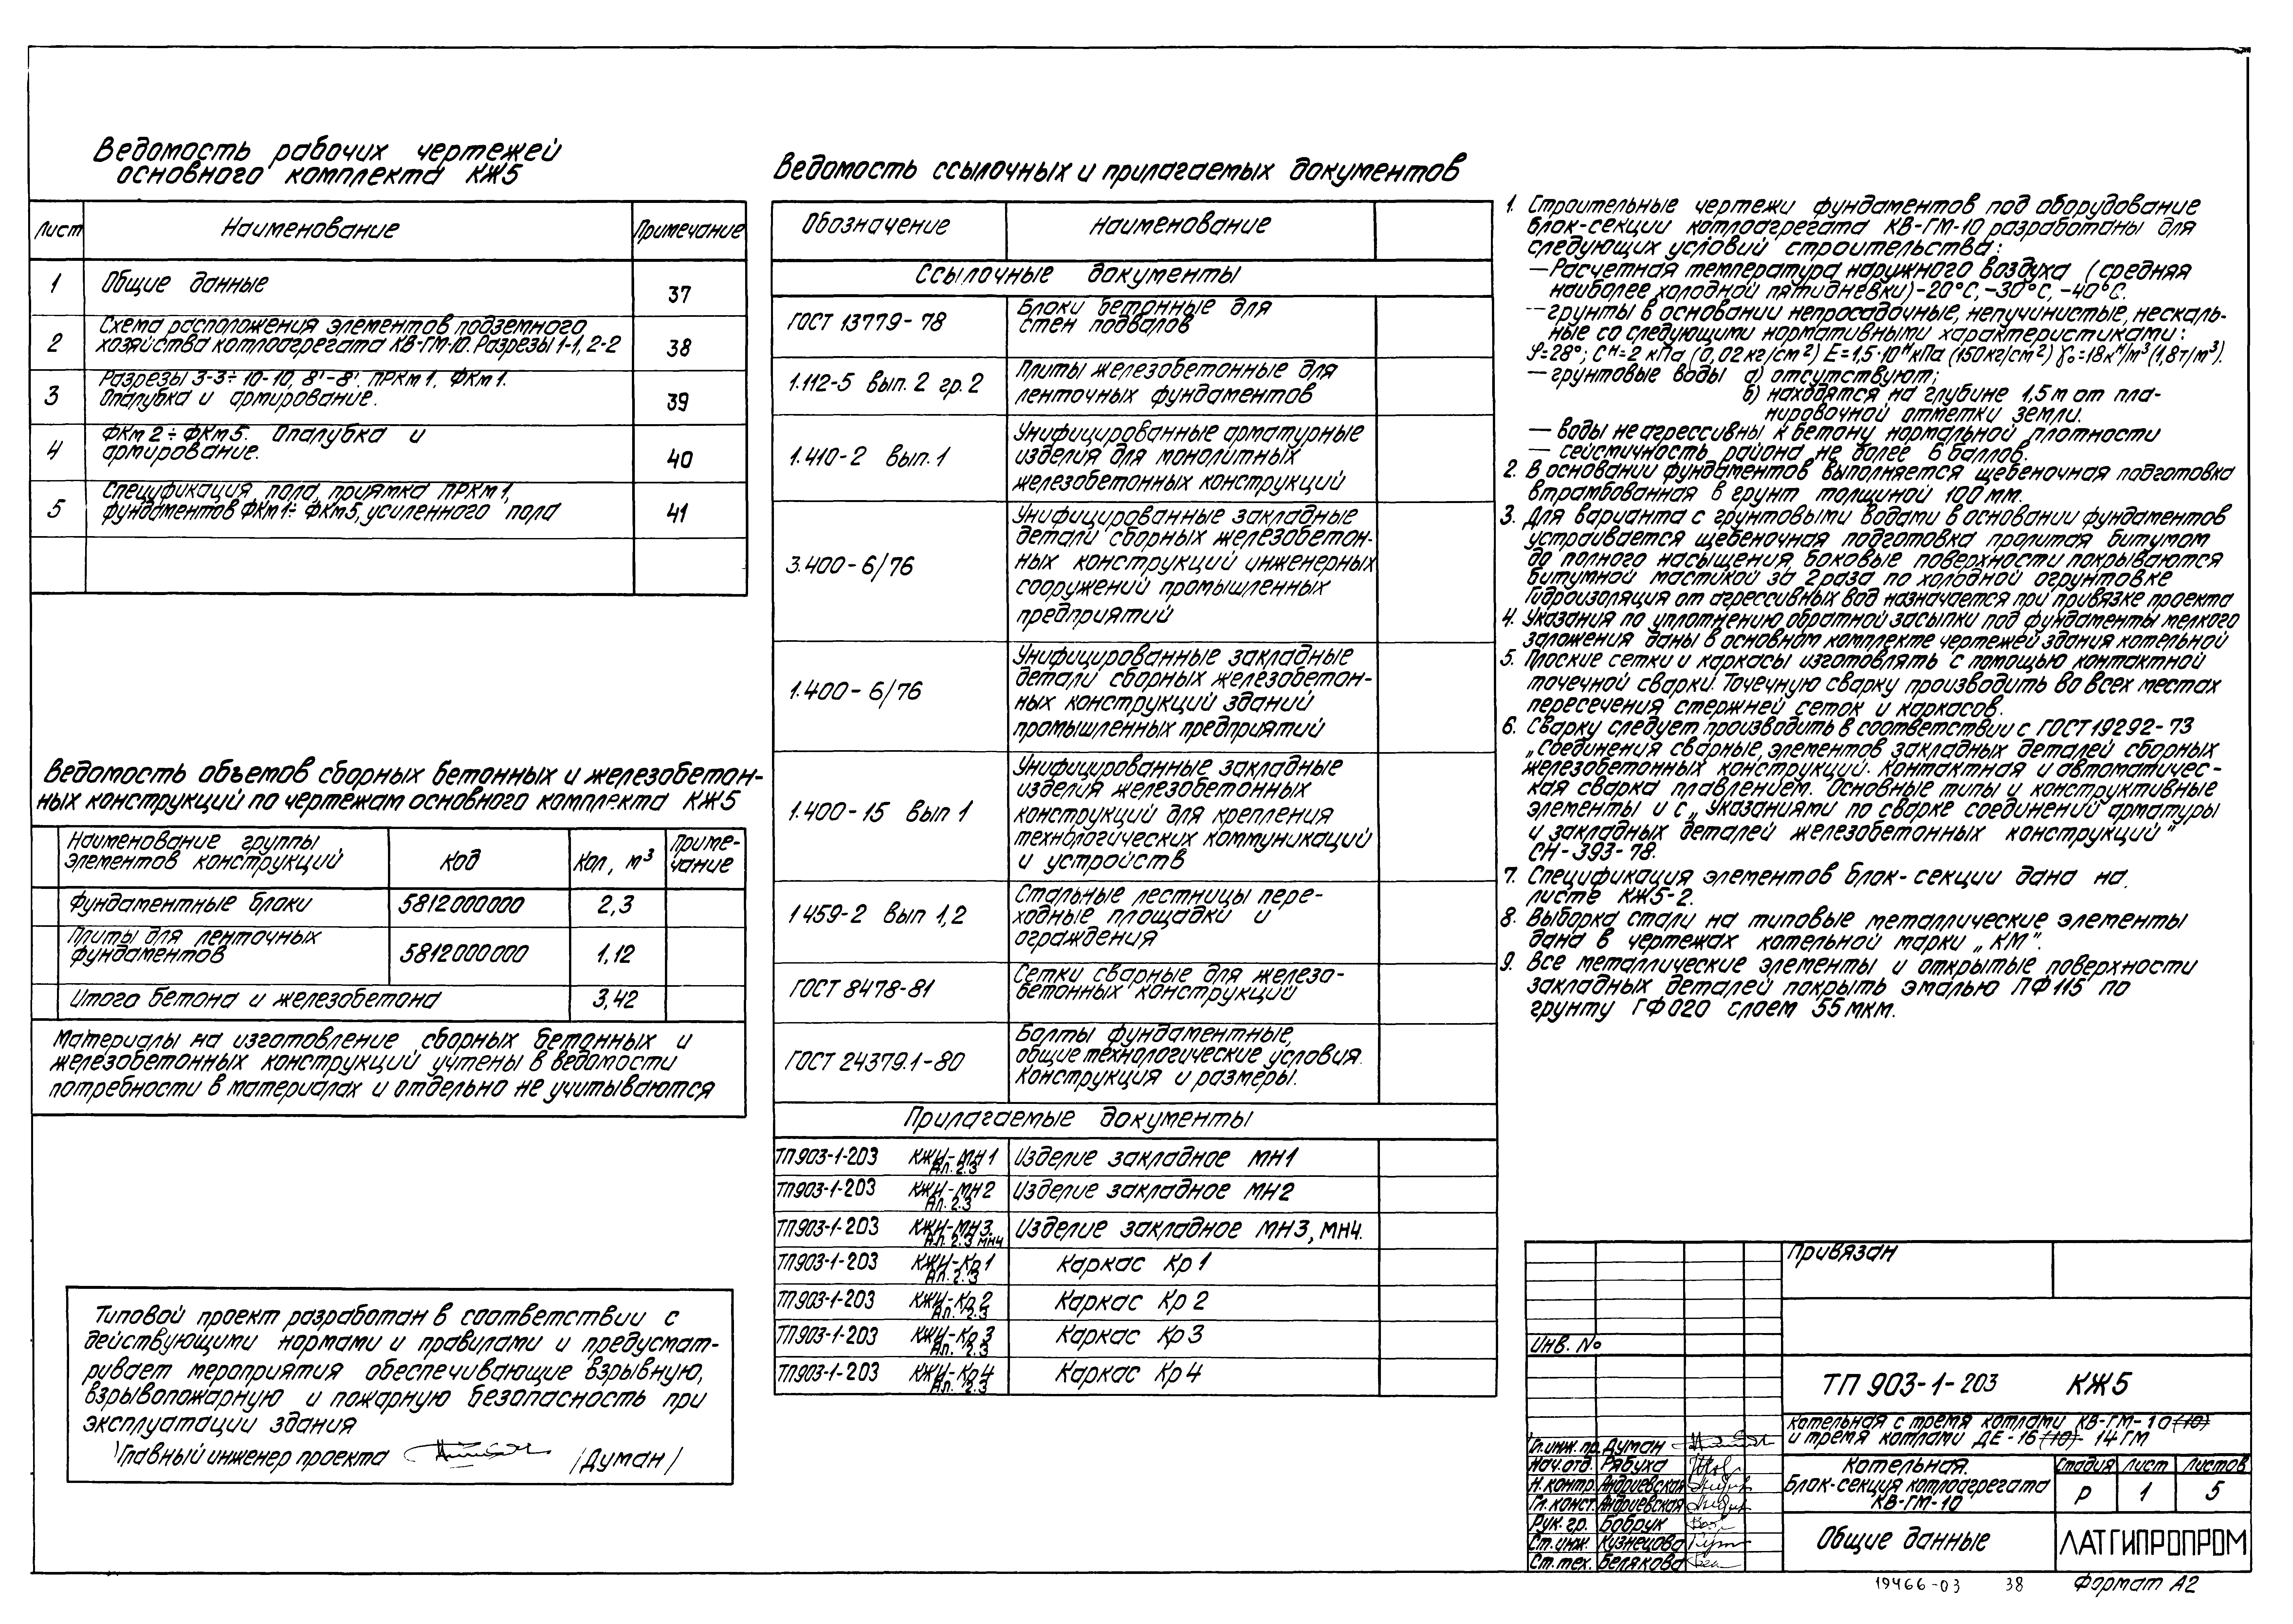 Ведомость рабочих чертежей
основного комплекта КЖ5
Лист Наименование Примечание
1 Общие данные 37
2 Схема расположения элементов подземного
хозяйства котлоагрегата КВ-ГМ-10. Разрезы 1-1, 2-2 38
3 Разрезы 3-3÷10-10, 8'-8'. ПРКм1, ФКм1.
Опалубка и армирование. 39
4 ФКм2÷ФКм5. Опалубка и
армирование. 40
5 Спецификация пола, приямка ПРКм1,
фундаментов ФКм1÷ФКм5, усиленного пола 41
Ведомость объемов сборных бетонных и железобетон-
ных конструкций по чертежам основного комплекта КЖ5
Наименование группы
элементов конструкций Код Кол, м³ Приме-
чание
Фундаментные блоки 5812000000 2,3
Плиты для ленточных
фундаментов 5812000000 1,12
Итого бетона и железобетона 3,42
Материалы на изготовление сборных бетонных и
железобетонных конструкций учтены в ведомости
потребности в материалах и отдельно не учитываются
Типовой проект разработан в соответствии с
действующими нормами и правилами и предусмат-
ривает мероприятия обеспечивающие взрывную,
взрывопожарную и пожарную безопасность при
эксплуатации здания
Главный инженер проекта /Думан/
Ведомость ссылочных и прилагаемых документов
Обозначение Наименование
Ссылочные документы
ГОСТ 13779-78 Блоки бетонные для
стен подвалов
1.112-5 вып. 2 гр. 2 Плиты железобетонные для
ленточных фундаментов
1.410-2 вып. 1 Унифицированные арматурные
изделия для монолитных
железобетонных конструкций
3.400-6/76 Унифицированные закладные
детали сборных железобетон-
ных конструкций инженерных
сооружений промышленных
предприятий
1.400-6/76 Унифицированные закладные
детали сборных железобетон-
ных конструкций зданий
промышленных предприятий
1.400-15 вып 1 Унифицированные закладные
изделия железобетонных
конструкций для крепления
технологических коммуникаций
и устройств
1 459-2 вып 1,2 Стальные лестницы пере-
ходные площадки и
ограждения
ГОСТ 8478-81 Сетки сварные для железо-
бетонных конструкций
ГОСТ 24379.1-80 Болты фундаментные,
общие технологические условия.
Конструкция и размеры.
Прилагаемые документы
ТП903-1-203 КЖИ-МН1 Ал. 2.3 Изделие закладное МН1
ТП903-1-203 КЖИ-МН2 Ал. 2.3 Изделие закладное МН2
ТП903-1-203 КЖИ-МН3. Ал. 2.3 МН4 Изделие закладное МН3, МН4.
ТП903-1-203 КЖИ-Кр1 Ал. 2.3 Каркас Кр1
ТП903-1-203 КЖИ-Кр2 Ал. 2.3 Каркас Кр2
ТП903-1-203 КЖИ-Кр3 Ал. 2.3 Каркас Кр3
ТП903-1-203 КЖИ-Кр4 Ал. 2.3 Каркас Кр4
1. Строительные чертежи фундаментов под оборудование
блок-секции котлоагрегата КВ-ГМ-10 разработаны для
следующих условий строительства:
— Расчетная температура наружного воздуха (средняя
наиболее холодной пятидневки) -20°С, -30°С, -40°С.
— грунты в основании непросадочные, непучинистые, нескаль-
ные со следующими нормативными характеристиками:
φ=28°; Cᴴ=2 кПа (0,02 кг/см²) E=1,5·10⁴кПа (150кг/см²) γ₀=18кᴴ/м³(1,8т/м³).
— грунтовые воды а) отсутствуют;
б) находятся на глубине 1,5 м от пла-
нировочной отметки земли.
— воды неагрессивны к бетону нормальной плотности
— сейсмичность района не более 6 баллов.
2. В основании фундаментов выполняется щебеночная подготовка
втрамбованная в грунт толщиной 100 мм.
3. Для варианта с грунтовыми водами в основании фундаментов
устраивается щебеночная подготовка пролитая битумом
до полного насыщения, боковые поверхности покрываются
битумной мастикой за 2 раза по холодной огрунтовке
Гидроизоляция от агрессивных вод назначается при привязке проекта
4. Указания по уплотнению обратной засыпки под фундаменты мелкого
заложения даны в основном комплекте чертежей здания котельной
5. Плоские сетки и каркасы изготовлять с помощью контактной
точечной сварки. Точечную сварку производить во всех местах
пересечения стержней сеток и каркасов.
6. Сварку следует производить в соответствии с ГОСТ 19292-73
„Соединения сварные, элементов закладных деталей сборных
железобетонных конструкций. Контактная и автоматичес-
кая сварка плавлением. Основные типы и конструктивные
элементы и с „Указаниями по сварке соединений арматуры
и закладных деталей железобетонных конструкций"
СН-393-78.
7. Спецификация элементов блок-секции дана на
листе КЖ5-2.
8. Выборка стали на типовые металлические элементы
дана в чертежах котельной марки „КМ".
9. Все металлические элементы и открытые поверхности
закладных деталей покрыть эмалью ПФ115 по
грунту ГФ020 слоем 55 мкм.
Привязан
Инв. №
ТП 903-1-203 КЖ5
Котельная с тремя котлами КВ-ГМ-10 (10)
и тремя котлами ДЕ-16 (10)-14ГМ
Гл.инж.пр. Думан
Нач.отд. Рябуха
Н.контр. Андриевская
Гл.конст. Андриевская
Рук.гр. Бобрук
Ст.инж. Кузнецова
Ст.тех. Белякова
Котельная.
Блок-секция котлоагрегата
КВ-ГМ-10
Стадия Лист Листов
Р 1 5
Общие данные
ЛАТГИПРОПРОМ
19466-03 38 Формат А2